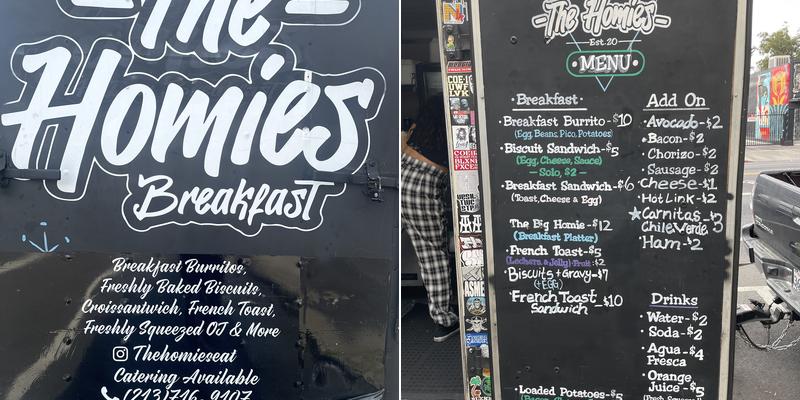 The
Homies
Breakfast
Breakfast Burritos,
Freshly Baked Biscuits,
Croissantwich, French Toast,
Freshly Squeezed OJ & More
Thehomieseat
Catering Available
(213)716-9107
The Homies
Est. 20
MENU
Breakfast
Breakfast Burrito-$10
(Egg, Beans, Pico, Potatoes)
Biscuit Sandwich-$5
(Egg, Cheese, Sauce)
- Solo, $2 -
Breakfast Sandwich-$6
(Toast, Cheese & Egg)
The Big Homie-$12
(Breakfast Platter)
French Toast-$5
(Lechera & Jelly) Fruit $2
Biscuits + Gravy-$7
(+EGG)
French Toast
Sandwich -$10
Loaded Potatoes-$5
Add On
Avocado-$2
Bacon-$2
Chorizo-$2
Sausage-$2
Cheese-$1
Hot Link-$2
Carnitas-$3
Chile Verde 3
Ham-$2
Drinks
Water-$2
Soda-$2
Agua -$4
Fresca
Orange
Juice -$5